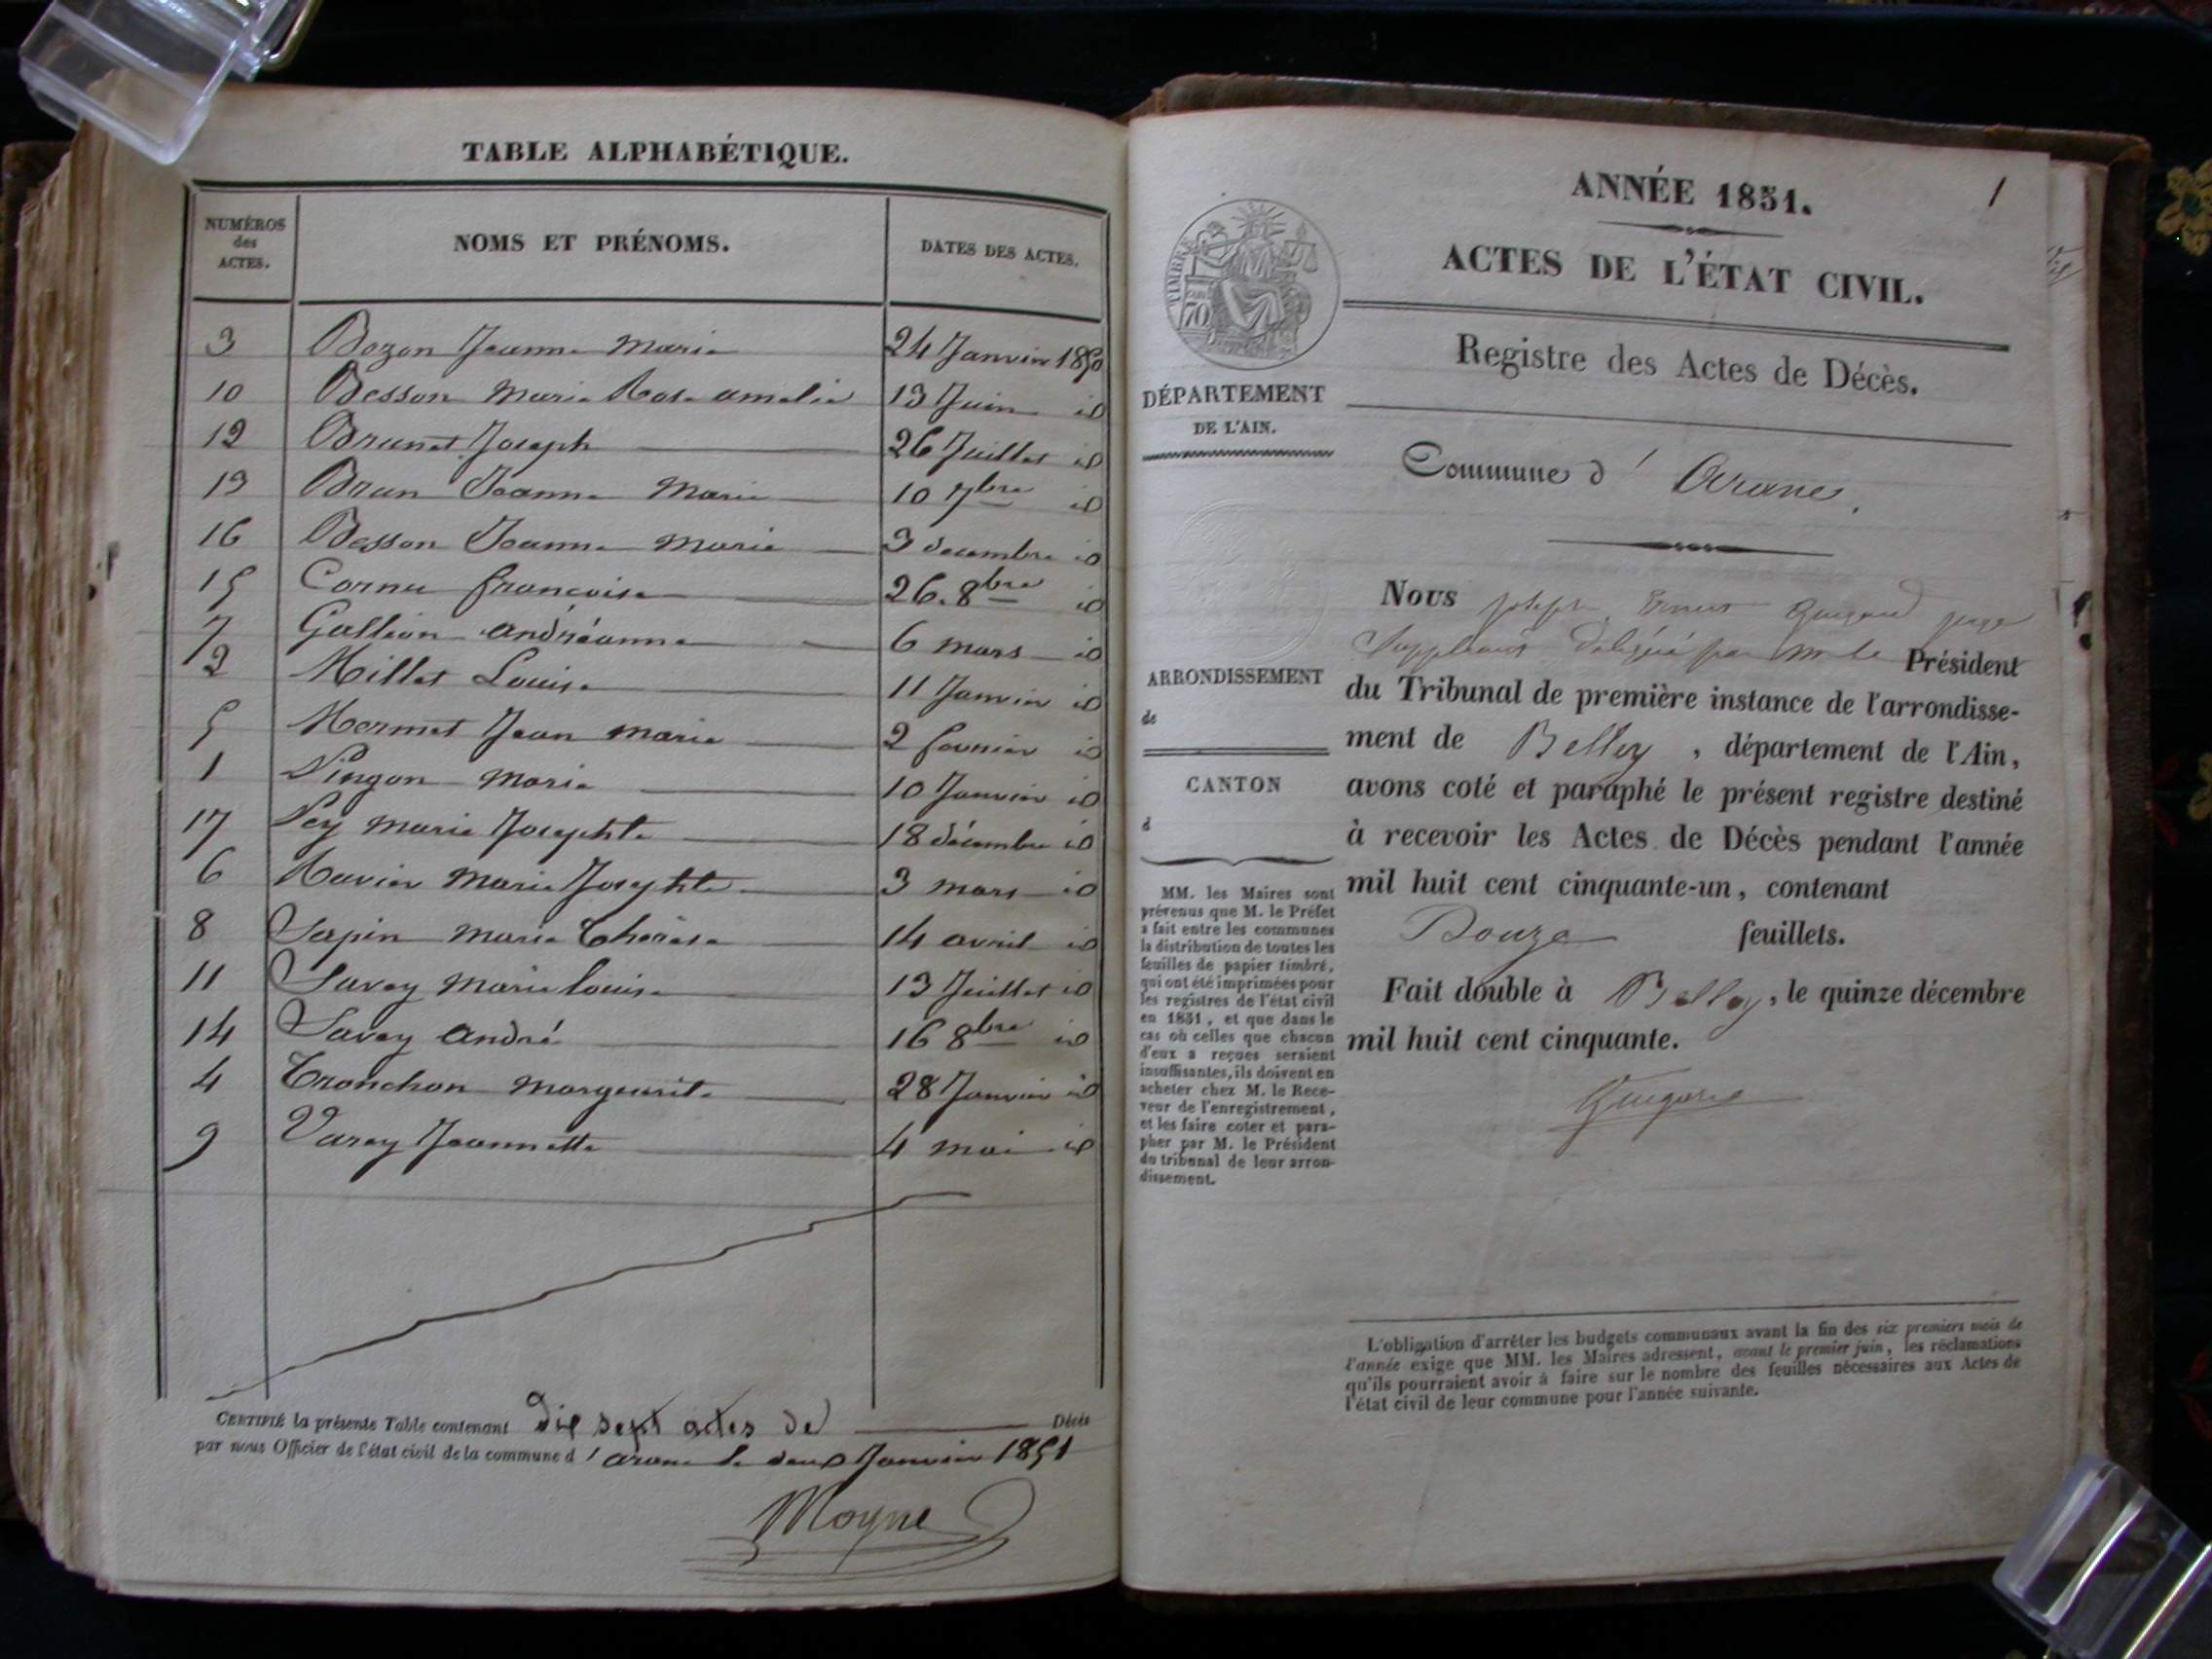 TABLE ALPHABÉTIQUE.
NUMÉROS
des
ACTES.
NOMS ET PRÉNOMS.
DATES DES ACTES.
3 Bozon Jeanne Marie 24 Janvier 1850
10 Besson Marie Rose amelie 13 Juin id
12 Brunet Joseph 26 Juillet id
13 Brun Jeanne Marie 10 7bre id
16 Besson Jeanne Marie 3 decembre id
15 Cornu françoise 26. 8bre id
7 Gallion andréanne 6 mars id
2 Millet Louise 11 Janvier id
5 Mermet Jean marie 2 fevrier id
1 Pingon Marie 10 Janvier id
17 Pey Marie Josephte 18 décembre id
6 Ravier Marie Josephte 3 mars id
8 Sapin Marie Thérèse 14 avril id
11 Savey Marie louise 13 Juillet id
14 Savey andré 16 8bre id
4 Tronchon Margeurite 28 Janvier id
9 Varey Jeannette 4 mai id
CERTIFIÉ la présente Table contenant dix sept actes de Décès
par nous Officier de l'état civil de la commune d'arane le deux Janvier 1851
Moyne
1
ANNÉE 1851.
ACTES DE L'ÉTAT CIVIL.
Registre des Actes de Décès.
TIMBRE
70
DÉPARTEMENT
DE L'AIN.
Commune d'Arane,
ARRONDISSEMENT
de
CANTON
d
MM. les Maires sont
prévenus que M. le Préfet
a fait entre les communes
la distribution de toutes les
feuilles de papier timbré,
qui ont été imprimées pour
les registres de l'état civil
en 1851, et que dans le
cas où celles que chacun
d'eux a reçues seraient
insuffisantes, ils doivent en
acheter chez M. le Rece-
veur de l'enregistrement,
et les faire coter et para-
pher par M. le Président
du tribunal de leur arron-
dissement.
Nous Joseph Ernest juge
Suppléant délégué par Mr le Président
du Tribunal de première instance de l'arrondisse-
ment de Belley, département de l'Ain,
avons coté et paraphé le présent registre destiné
à recevoir les Actes de Décès pendant l'année
mil huit cent cinquante-un, contenant
Douze feuillets.
Fait double à Belley, le quinze décembre
mil huit cent cinquante.
L'obligation d'arrêter les budgets communaux avant la fin des six premiers mois de
l'année exige que MM. les Maires adressent, avant le premier juin, les réclamations
qu'ils pourraient avoir à faire sur le nombre des feuilles nécessaires aux Actes de
l'état civil de leur commune pour l'année suivante.